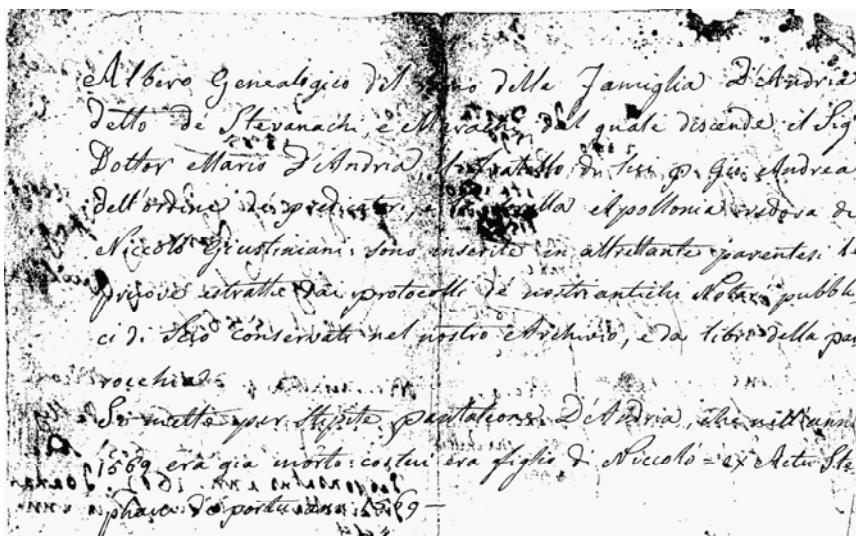 Albero Genealogico del ramo della Famiglia D'Andria
detto de Stevanachi, e Marachi, dal quale discende il Sig
Dottor Mario D'Andria, il fratello di lui p. Gio. Andrea
dell'ordine de predicatori, e la sorella Apollonia vedova di
Niccolò Giustiniani: sono inserite in altrettante parentesi le
pruove estratte dai protocolli de nostri antichi Notari pubbli
ci di Scio conservati nel nostro Archivio, e da libri della par
rocchia
Si mette per stipite pantaleone D'Andria, che nell'anno
1569 era già morto: costui era figlio di Niccolò = ex Actis Ste
phani de portu anno 1569 —